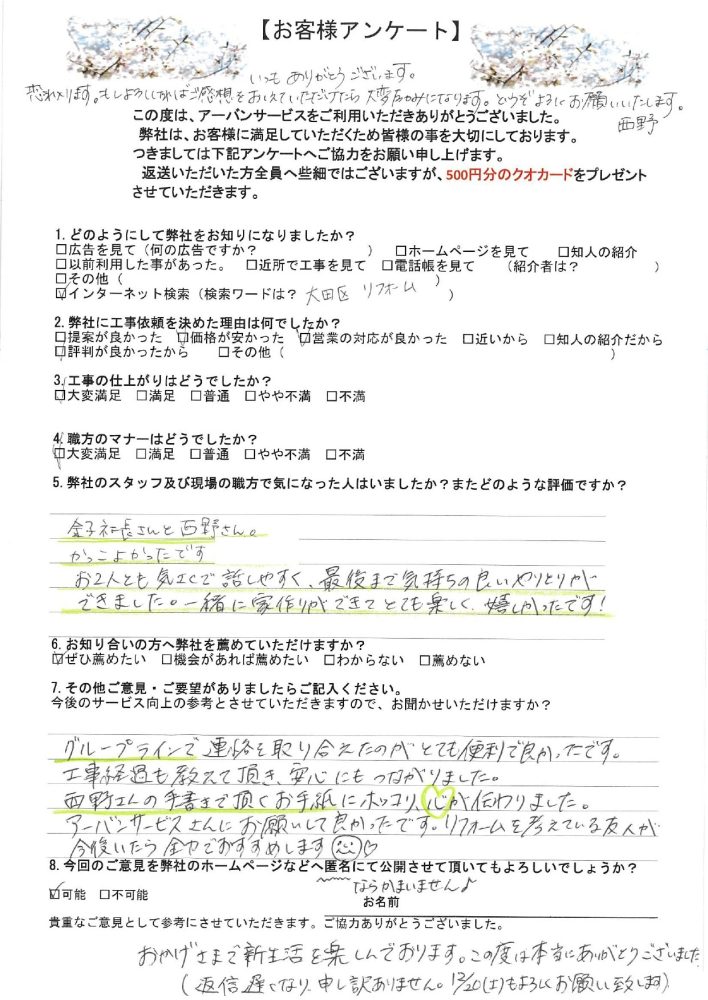 【お客様アンケート】
いつもありがとうございます。
恐れ入ります。もしよろしければご感想をおしえていただけたら大変励みになります。どうぞよろしくお願いいたします。
西野
この度は、アーバンサービスをご利用いただきありがとうございました。
弊社は、お客様に満足していただくため皆様の事を大切にしております。
つきましては下記アンケートへご協力をお願い申し上げます。
返送いただいた方全員へ些細ではございますが、500円分のクオカードをプレゼント
させていただきます。
1. どのようにして弊社をお知りになりましたか?
□広告を見て(何の広告ですか? ) □ホームページを見て □知人の紹介
□以前利用した事があった。 □近所で工事を見て □電話帳を見て (紹介者は? )
□その他( )
☑インターネット検索(検索ワードは? 大田区 リフォーム )
2. 弊社に工事依頼を決めた理由は何でしたか?
□提案が良かった ☑価格が安かった ☑営業の対応が良かった □近いから □知人の紹介だから
☑評判が良かったから □その他( )
3. 工事の仕上がりはどうでしたか?
☑大変満足 □満足 □普通 □やや不満 □不満
4. 職方のマナーはどうでしたか?
☑大変満足 □満足 □普通 □やや不満 □不満
5. 弊社のスタッフ及び現場の職方で気になった人はいましたか?またどのような評価ですか?
金子社長さんと西野さん。
かっこよかったです
お2人とも気さくで話しやすく、最後まで気持ちの良いやりとりが
できました。一緒に家作りができてとても楽しく、嬉しかったです!
6. お知り合いの方へ弊社を薦めていただけますか?
☑ぜひ薦めたい □機会があれば薦めたい □わからない □薦めない
7. その他ご意見・ご要望がありましたらご記入ください。
今後のサービス向上の参考とさせていただきますので、お聞かせいただけますか?
グループラインで連絡を取り合えたのがとても便利で良かったです。
工事経過も教えて頂き、安心にもつながりました。
西野さんの手書きで頂くお手紙にホッコリ、心が伝わりました。
アーバンサービスさんにお願いして良かったです。リフォームを考えている友人が
今後いたら全力でおすすめします
8. 今回のご意見を弊社のホームページなどへ匿名にて公開させて頂いてもよろしいでしょうか?
☑可能 □不可能 ならかまいません♪
お名前
貴重なご意見として参考にさせていただきます。ご協力ありがとうございました。
おかげさまで新生活を楽しんでおります。この度は本当にありがとうございました
(返信遅くなり、申し訳ありません。12/20(土)もよろしくお願い致します)